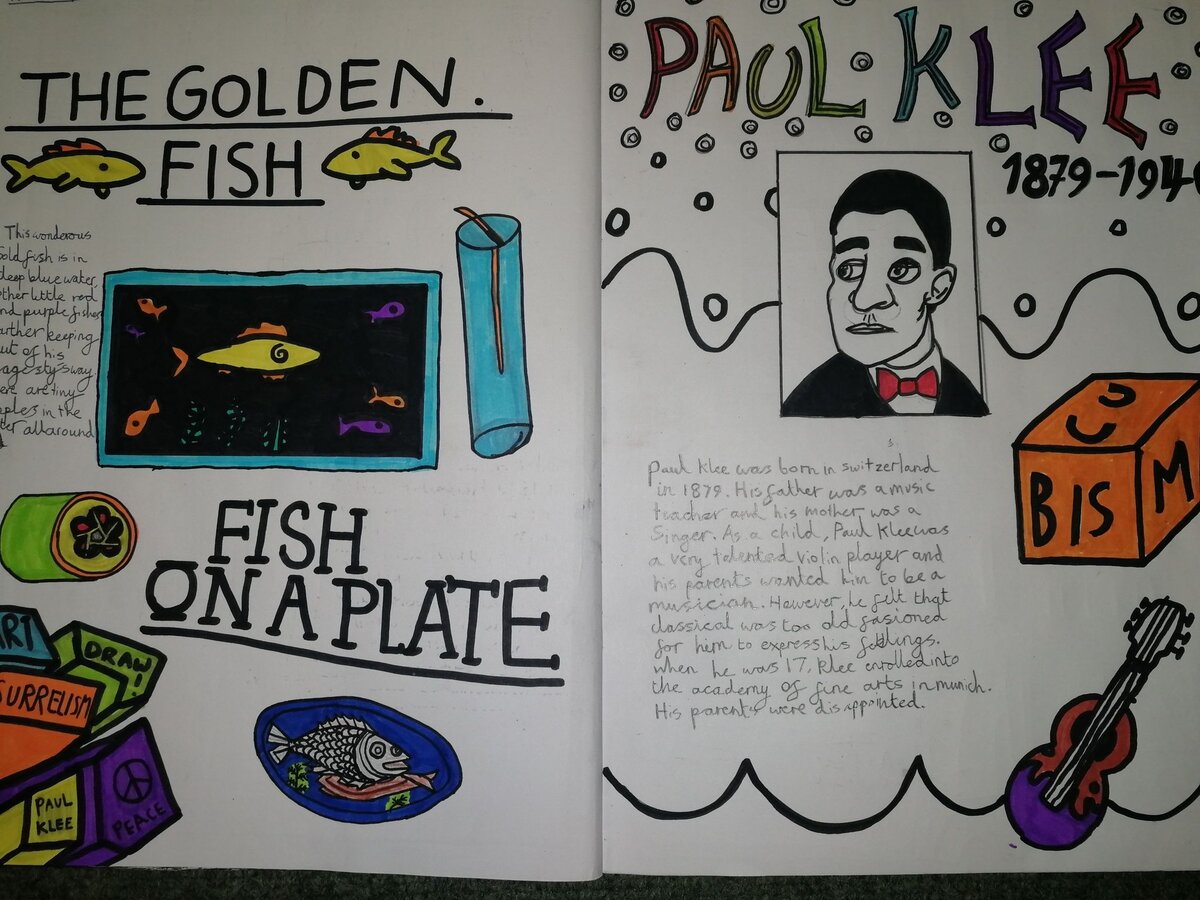 THE GOLDEN.
FISH
This wonderous
Goldfish is in
deep blue water
other little red
and purple fishes
farther keeping
out of his
way
are tiny
in the
all around
FISH
ON A PLATE
ART
DRAW!
SURRELISM
PAUL
KLEE
PEACE
PAUL KLEE
1879-194
Paul Klee was born in switzerland
in 1879. His father was a music
teacher and his mother was a
Singer. As a child, Paul Klee was
a very talented violin player and
his parents wanted him to be a
musician. However, he felt that
classical was too old fasioned
for him to express his feelings.
when he was 17, Klee enrolled into
the academy of fine arts in munich.
His parents were disappointed.
BIS
M